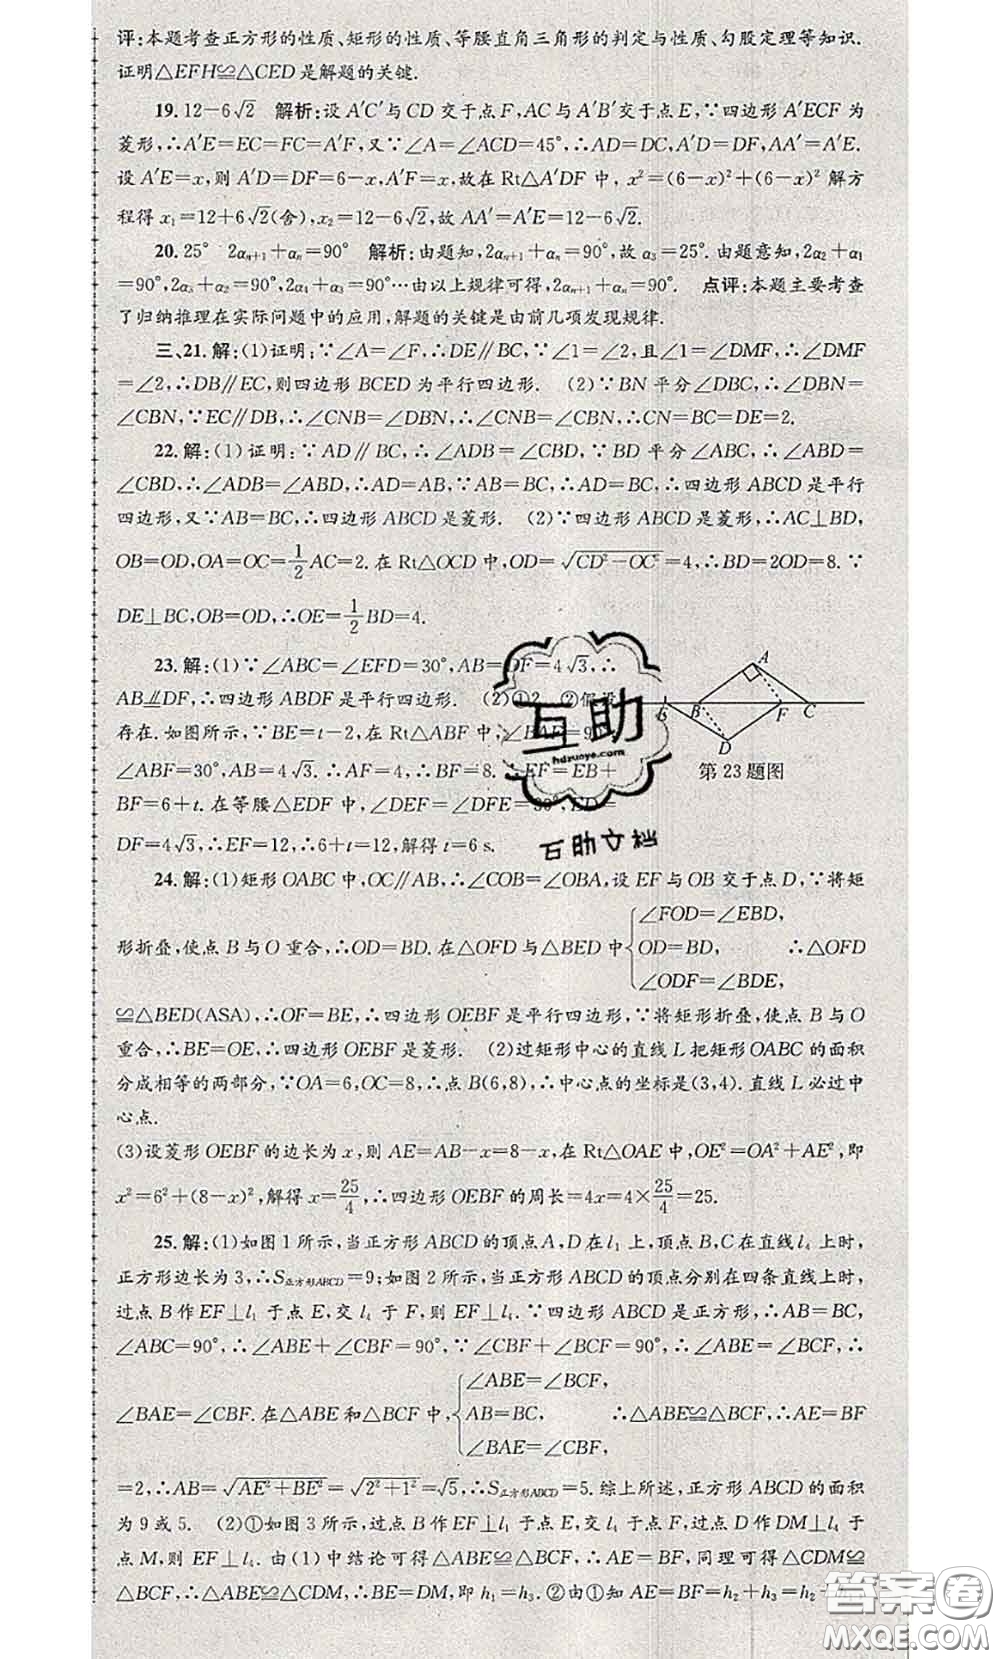 评:本题考查正方形的性质、矩形的性质、等腰直角三角形的判定与性质、勾股定理等知识.
证明△EFH≌△CED是解题的关键.
19.12-6√2 解析:设A′C′与CD交于点F,AC与A′B′交于点E,∵四边形A′ECF为
菱形,∴A′E=EC=FC=A′F,又∵∠A=∠ACD=45°,∴AD=DC,A′D=DF,AA′=A′E.
设A′E=x,则A′D=DF=6-x,A′F=x,故在Rt△A′DF中,x²=(6-x)²+(6-x)²解方
程得x₁=12+6√2(舍),x₂=12-6√2,故AA′=A′E=12-6√2.
20.25° 2αₙ₊₁+αₙ=90° 解析:由题知,2αₙ₊₁+αₙ=90°,故α₃=25°.由题意知,2α₂+α₁
=90°,2α₃+α₂=90°,2α₄+α₃=90°…由以上规律可得,2αₙ₊₁+αₙ=90°. 点评:本题主要考查
了归纳推理在实际问题中的应用,解题的关键是由前几项发现规律.
三、21.解:(1)证明:∵∠A=∠F,∴DE∥BC,∵∠1=∠2,且∠1=∠DMF,∴∠DMF
=∠2,∴DB∥EC,则四边形BCED为平行四边形. (2)∵BN平分∠DBC,∴∠DBN=
∠CBN,∵EC∥DB,∴∠CNB=∠DBN,∴∠CNB=∠CBN,∴CN=BC=DE=2.
22.解:(1)证明:∵AD∥BC,∴∠ADB=∠CBD,∵BD平分∠ABC,∴∠ABD=
∠CBD,∴∠ADB=∠ABD,∴AD=AB,∵AB=BC,∴AD=BC,∴四边形ABCD是平行
四边形,又∵AB=BC,∴四边形ABCD是菱形. (2)∵四边形ABCD是菱形,∴AC⊥BD,
OB=OD,OA=OC=1/2AC=2.在Rt△OCD中,OD=√(CD²-OC²)=4,∴BD=2OD=8.∵
DE⊥BC,OB=OD,∴OE=1/2BD=4.
23.解:(1)∵∠ABC=∠EFD=30°,AB=DF=4√3,∴
AB∥DF,∴四边形ABDF是平行四边形. (2)①2 ②假设
存在.如图所示,∵BE=t-2,在Rt△ABF中,∠BAF=90°,
∠ABF=30°,AB=4√3.∴AF=4,∴BF=8.∴EF=EB+
BF=6+t.在等腰△EDF中,∠DEF=∠DFE=30°,ED=
DF=4√3,∴EF=12,∴6+t=12,解得t=6 s.
A
E B F C
D
第23题图
24.解:(1)矩形OABC中,OC∥AB,∴∠COB=∠OBA,设EF与OB交于点D,∵将矩
形折叠,使点B与O重合,∴OD=BD.在△OFD与△BED中{∠FOD=∠EBD, OD=BD, ∠ODF=∠BDE, ∴△OFD
≌△BED(ASA),∴OF=BE,∴四边形OEBF是平行四边形,∵将矩形折叠,使点B与O
重合,∴BE=OE,∴四边形OEBF是菱形. (2)过矩形中心的直线L把矩形OABC的面积
分成相等的两部分,∵OA=6,OC=8,∴点B(6,8),∴中心点的坐标是(3,4).直线L必过中
心点.
(3)设菱形OEBF的边长为x,则AE=AB-x=8-x,在Rt△OAE中,OE²=OA²+AE²,即
x²=6²+(8-x)²,解得x=25/4,∴四边形OEBF的周长=4x=4×25/4=25.
25.解:(1)如图1所示,当正方形ABCD的顶点A,D在l₁上,顶点B,C在直线l₄上时,
正方形边长为3,∴S正方形ABCD=9;如图2所示,当正方形ABCD的顶点分别在四条直线上时,
过点B作EF⊥l₁于点E,交l₄于F,则EF⊥l₄.∵四边形ABCD是正方形,∴AB=BC,
∠ABC=90°,∴∠ABE+∠CBF=90°,∵∠CBF+∠BCF=90°,∴∠ABE=∠BCF,
∠BAE=∠CBF.在△ABE和△BCF中,{∠ABE=∠BCF, AB=BC, ∠BAE=∠CBF, ∴△ABE≌△BCF,∴AE=BF
=2,∴AB=√(AE²+BE²)=√(2²+1²)=√5,∴S正方形ABCD=5.综上所述,正方形ABCD的面积
为9或5. (2)①如图3所示,过点B作EF⊥l₁于点E,交l₄于点F,过点D作DM⊥l₄于
点M,则EF⊥l₄.由(1)中结论可得△ABE≌△BCF,∴AE=BF,同理可得△CDM≌
△BCF,∴△ABE≌△CDM,∴BE=DM,即h₁=h₃.②由①知AE=BF=h₂+h₃=h₂+
互助
hdzuoye.com
互助文档
答案圈
MXQE.COM